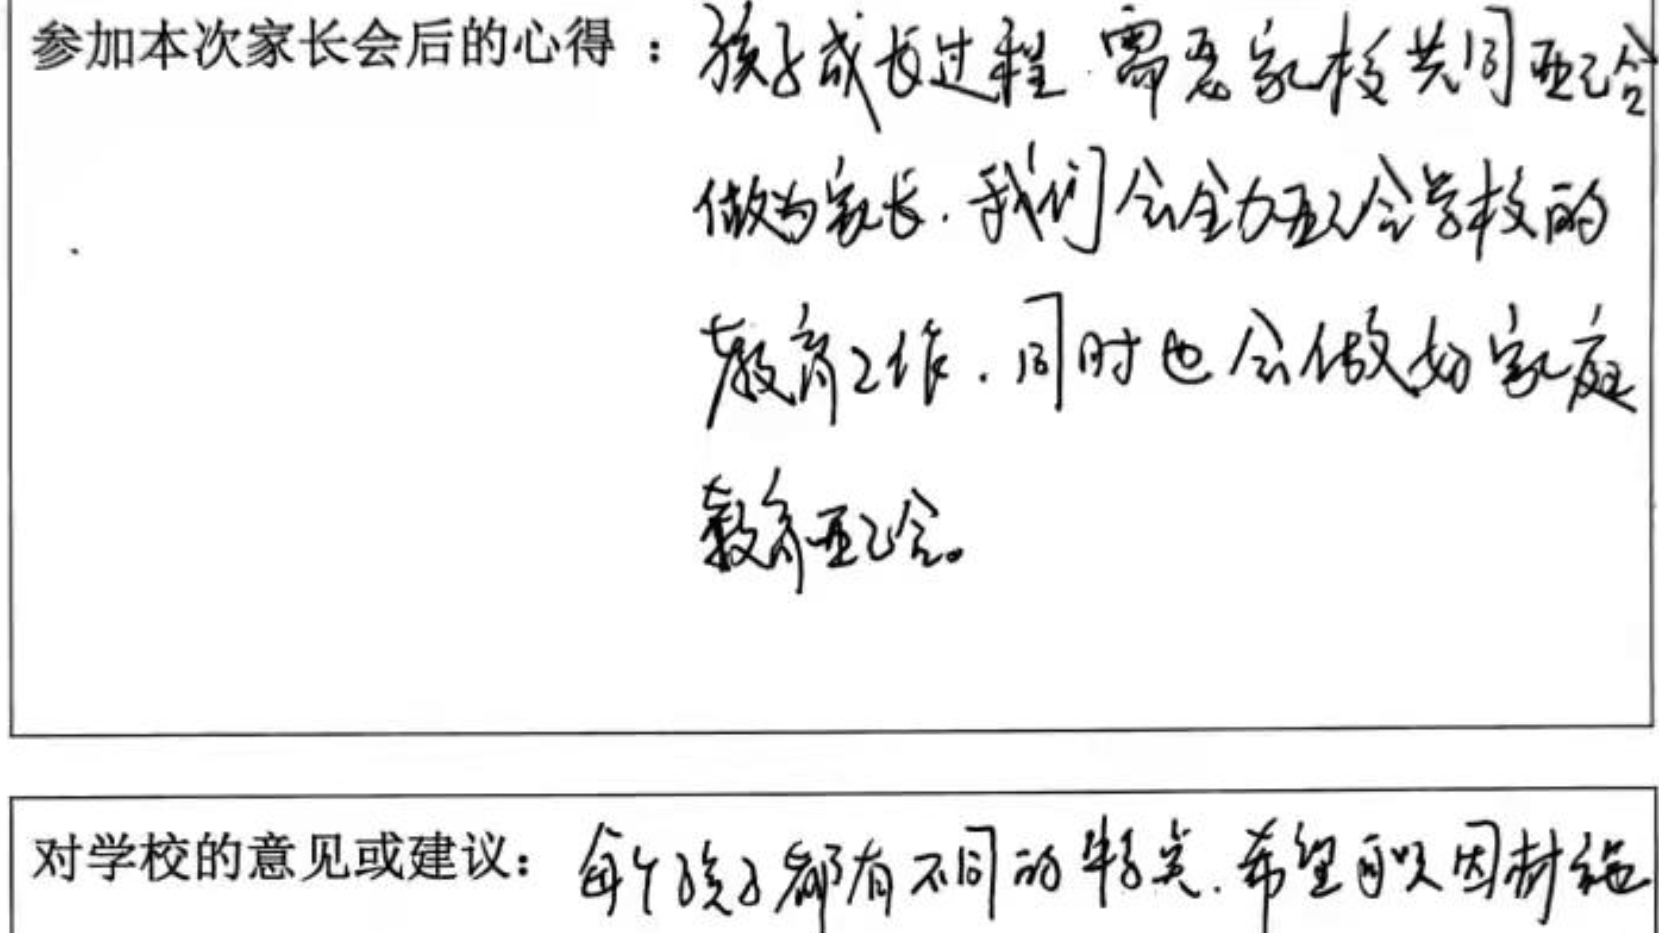 参加本次家长会后的心得：孩子成长过程.需要家校共同配合
做为家长.我们会全力配合学校的
教育工作.同时也会做好家庭
教育配合。
对学校的意见或建议：每个孩子都有不同的特点.希望可以因材施